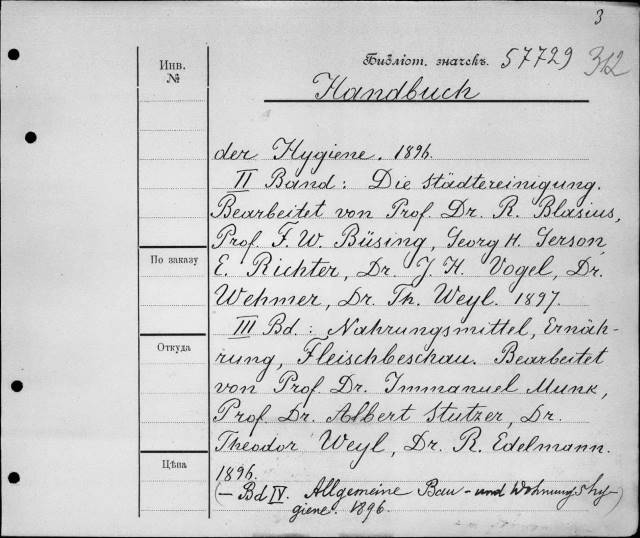 3
Инв.
№
Библіот. значекъ. 57729 312
Handbuch
der Hygiene. 1896.
II Band: Die Städtereinigung.
Bearbeitet von Prof. Dr. R. Blasius,
Prof. F. W. Büsing, Georg H. Gerson,
По заказу
E. Richter, Dr. J. H. Vogel, Dr.
Wehmer, Dr. Th. Weyl. 1897.
III Bd.: Nahrungsmittel, Ernäh-
Откуда
rung, Fleischbeschau. Bearbeitet
von Prof. Dr. Immanuel Munk,
Prof. Dr. Albert Stutzer, Dr.
Theodor Weyl, Dr. R. Edelmann.
Цѣна
1896.
(- Bd IV. Allgemeine Bau- und Wohnungshy-)
giene. 1896.